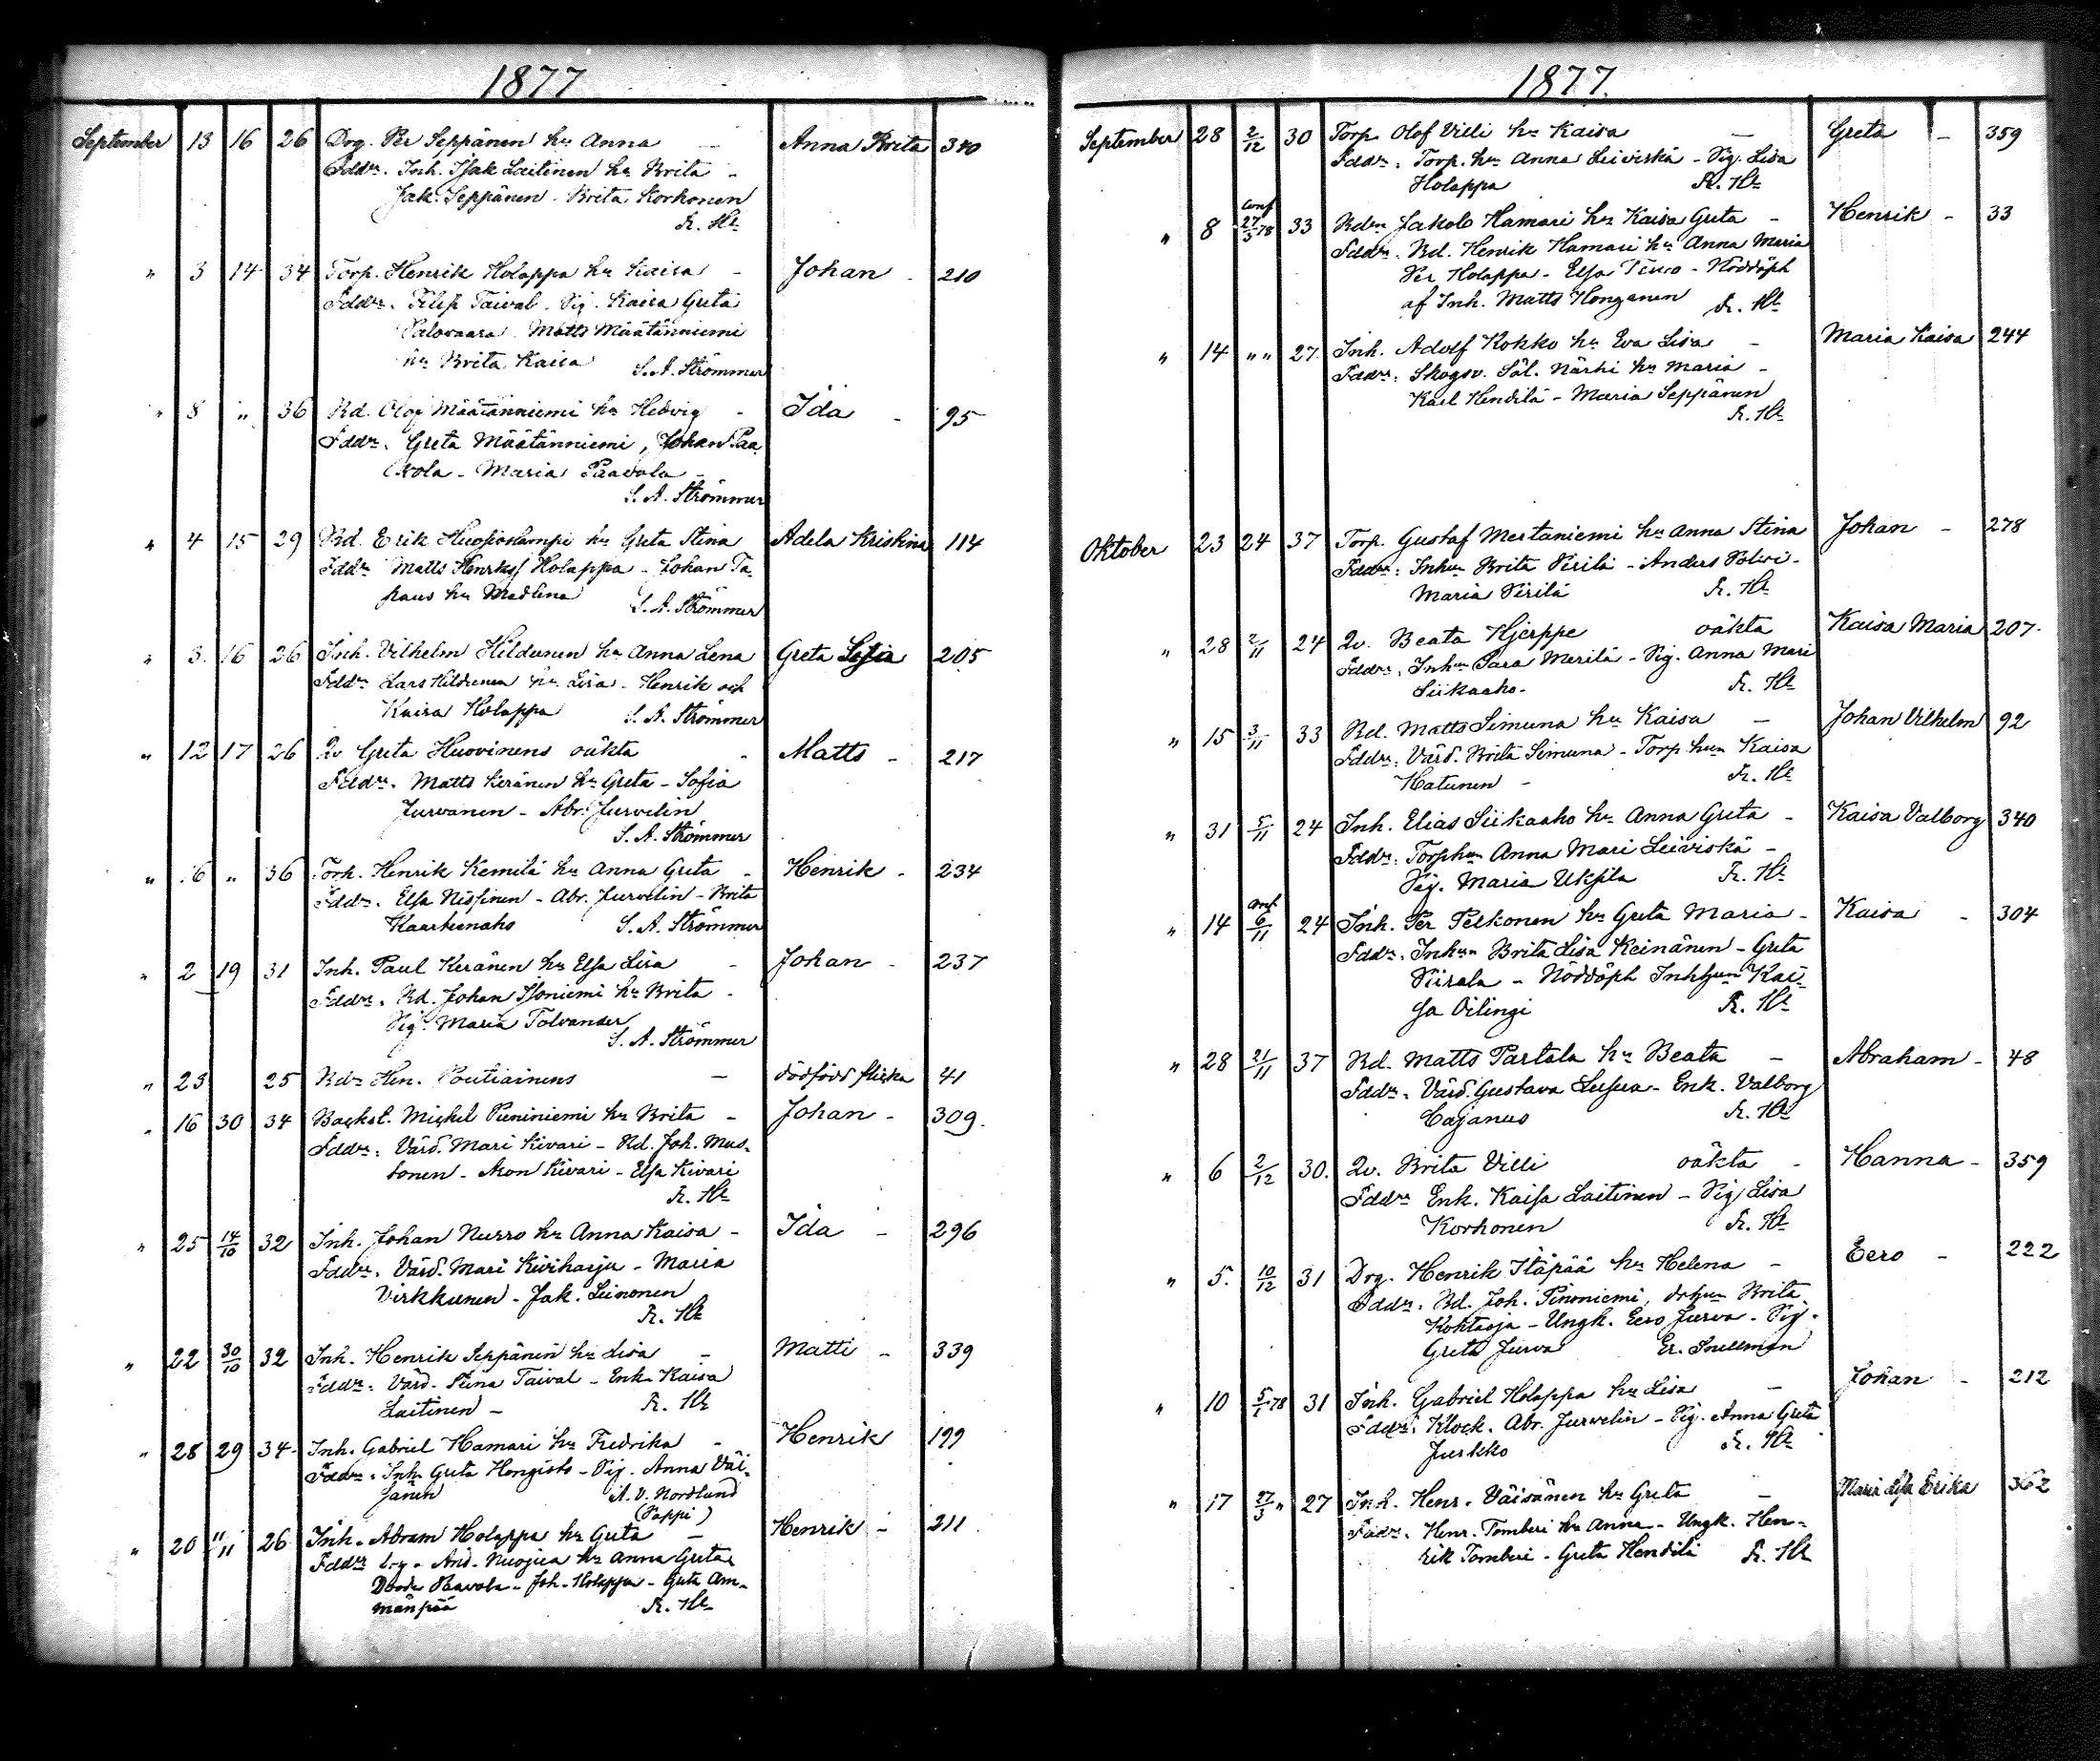 1877
September 13 16 26 Drg. Per Seppänen hu Anna – Anna Brita 340
Fddrr. Inh. Isak Laitinen hu Brita -
Jak. Seppänen - Brita Korhonen
R. Hl
" 3 14 34 Torp. Henrik Holappa hu Kaisa - Johan - 210
Fddrr. Filip Taival. Pig. Kaisa Greta
Palovaara. Matts Määtänniemi
hu Brita Kaisa S. A. Strömmer
" 8 " 36 Bd. Olof Määtänniemi hu Hedvig - Ida - 95
Fddrr. Greta Määtänniemi, Johan Paa
vola - Maria Paavola -
S. A. Strömmer
" 4 15 29 Bd. Erik Huosioslampi hu Greta Stina Adela Kristina 114
Fddrr Matts Henrikss Holappa - Johan Ta-
panis hu Madlena S. A. Strömmer
" 3. 16 26 Inh. Vilhelm Hildunen hu Anna Lena Greta Sofia 205
Fddrr Lars Hildunen hu Lisa - Henrik och
Kaisa Holappa S. A. Strömmer
" 12 17 26 Qv Greta Huovinens oäkta - Matts - 217
Fddrr. Matts Keränen hu Greta - Sofia
Jurvanen - Abr. Jurvelin
S. A. Strömmer
" 6 " 36 Torp. Henrik Kemilä hu Anna Greta - Henrik - 234
Fddrr. Elsa Nissinen - Abr. Jurvelin - Brita
Kaarkenaho S. A. Strömmer
" 2 19 31 Inh. Paul Keränen hu Elsa Lisa - Johan - 237
Fddrr. Bd. Johan Isoniemi hu Brita -
Pig. Maria Tolvander
S. A. Strömmer
" 23 25 Bdn Hen. Poutiainens – dödfödd flicka 41
" 16 30 34 Backst. Mickel Pieniniemi hu Brita - Johan - 309.
Fddrr: Värd. Mari Kivari - Bd. Joh. Mus-
tonen - Aron Kivari - Elsa Kivari
R. Hl
" 25 14/10 32 Inh. Johan Nurro hu Anna Kaisa - Ida - 296
Fddrr. Värd. Mari Kiviharju - Maria
Virkkunen - Jak. Leinonen
R. Hl
" 22 30/10 32 Inh. Henrik Seppänen hu Lisa – Matti - 339
Fddrr: Värd. Stina Taival - Enk. Kaisa
Laitinen - R. Hl
" 28 29 34 Inh. Gabriel Hamari hu Fredrika - Henrik 199
Fddrr. Inh. Greta Hongisto - Pig. Anna Väi-
sänen A. V. Nordlund
(Pappi)
" 20 11/11 26 Inh. Abram Holappa hu Greta – Henrik - 211
Fddrr Drg. And. Nuojua hu Anna Greta
Paavola - Joh. Holappa - Greta Äm-
mänpää R. Hl
1877.
September 28 2/12 30 Torp Olof Villi hu Kaisa – Greta - 359
Fddrr: Torp. hu Anna Leiviskä - Pig. Lisa
Holappa R. Hl
" 8 conf 27/3 78 33 Bdn Jakob Hamari hu Kaisa Greta - Henrik - 33
Fddrr. Bd. Henrik Hamari hu Anna Maria
Per Holappa - Elsa Tervo - Nöddöpt
af Inh. Matts Honganen R. Hl
" 14 " " 27. Inh. Adolf Kokko hu Eva Lisa - Maria Kaisa 244
Fddrr: Skogsv. Sal. Närhi hu Maria -
Karl Hendilä - Maria Seppänen
R. Hl
Oktober 23 24 37 Torp. Gustaf Mertaniemi hu Anna Stina Johan - 278
Fddrr: Inhn Brita Pirilä - Anders Polvi -
Maria Pirilä R. Hl
" 28 2/11 24 Qv. Beata Hjerppe oäkta Kaisa Maria 207.
Fddrr: Inhn Sara Merilä - Pig. Anna Mari
Siikaaho. R. Hl
" 15 3/11 33 Bd. Matts Simuna hu Kaisa – Johan Vilhelm 92
Fddrr: Värd. Brita Simuna - Torp. hun Kaisa
Hatunen - R. Hl
" 31 5/11 24 Inh. Elias Siikaaho hu Anna Greta - Kaisa Valborg 340
Fddrr: Torphun Anna Mari Leiviskä -
Pig. Maria Uksila R. Hl
" 14 conf 6/11 24 Inh. Per Pelkonen hu Greta Maria - Kaisa - 304
Fddrr. Inhn Brita Lisa Keinänen - Greta
Piirala - Nöddöpt Inhhun Kai-
sa Oilingi R. Hl
" 28 21/11 37 Bd. Matts Partala hu Beata – Abraham - 48
Fddrr: Värd. Gustava Lusua - Enk. Valborg
Cajanus R. Hl
" 6 2/12 30. Qv. Brita Villi oäkta - Hanna - 359
Fddrr Enk. Kaisa Laitinen - Pig Lisa
Korhonen R. Hl
" 5. 10/12 31 Drg. Henrik Itäpää hu Helena - Eero - 222
Fddrr. Bd. Joh. Pinoniemi, drhun Brita
Kohtaoja - Ungk. Eero Jurva - Pig.
Greta Jurva Er. Snellman
" 10 5/1 78 31 Inh. Gabriel Holappa hu Lisa – Johan - 212
Fddrr. Klock. Abr. Jurvelin - Pig. Anna Greta
Jurkko R. Hl
" 17 27/3 " 27 Inh. Henr. Väisänen hu Greta – Maria Lisa Erika 362
Fddrr. Henr. Tomberi hu Anna - Ungk. Hen-
rik Tomberi - Greta Hendilä R. Hl